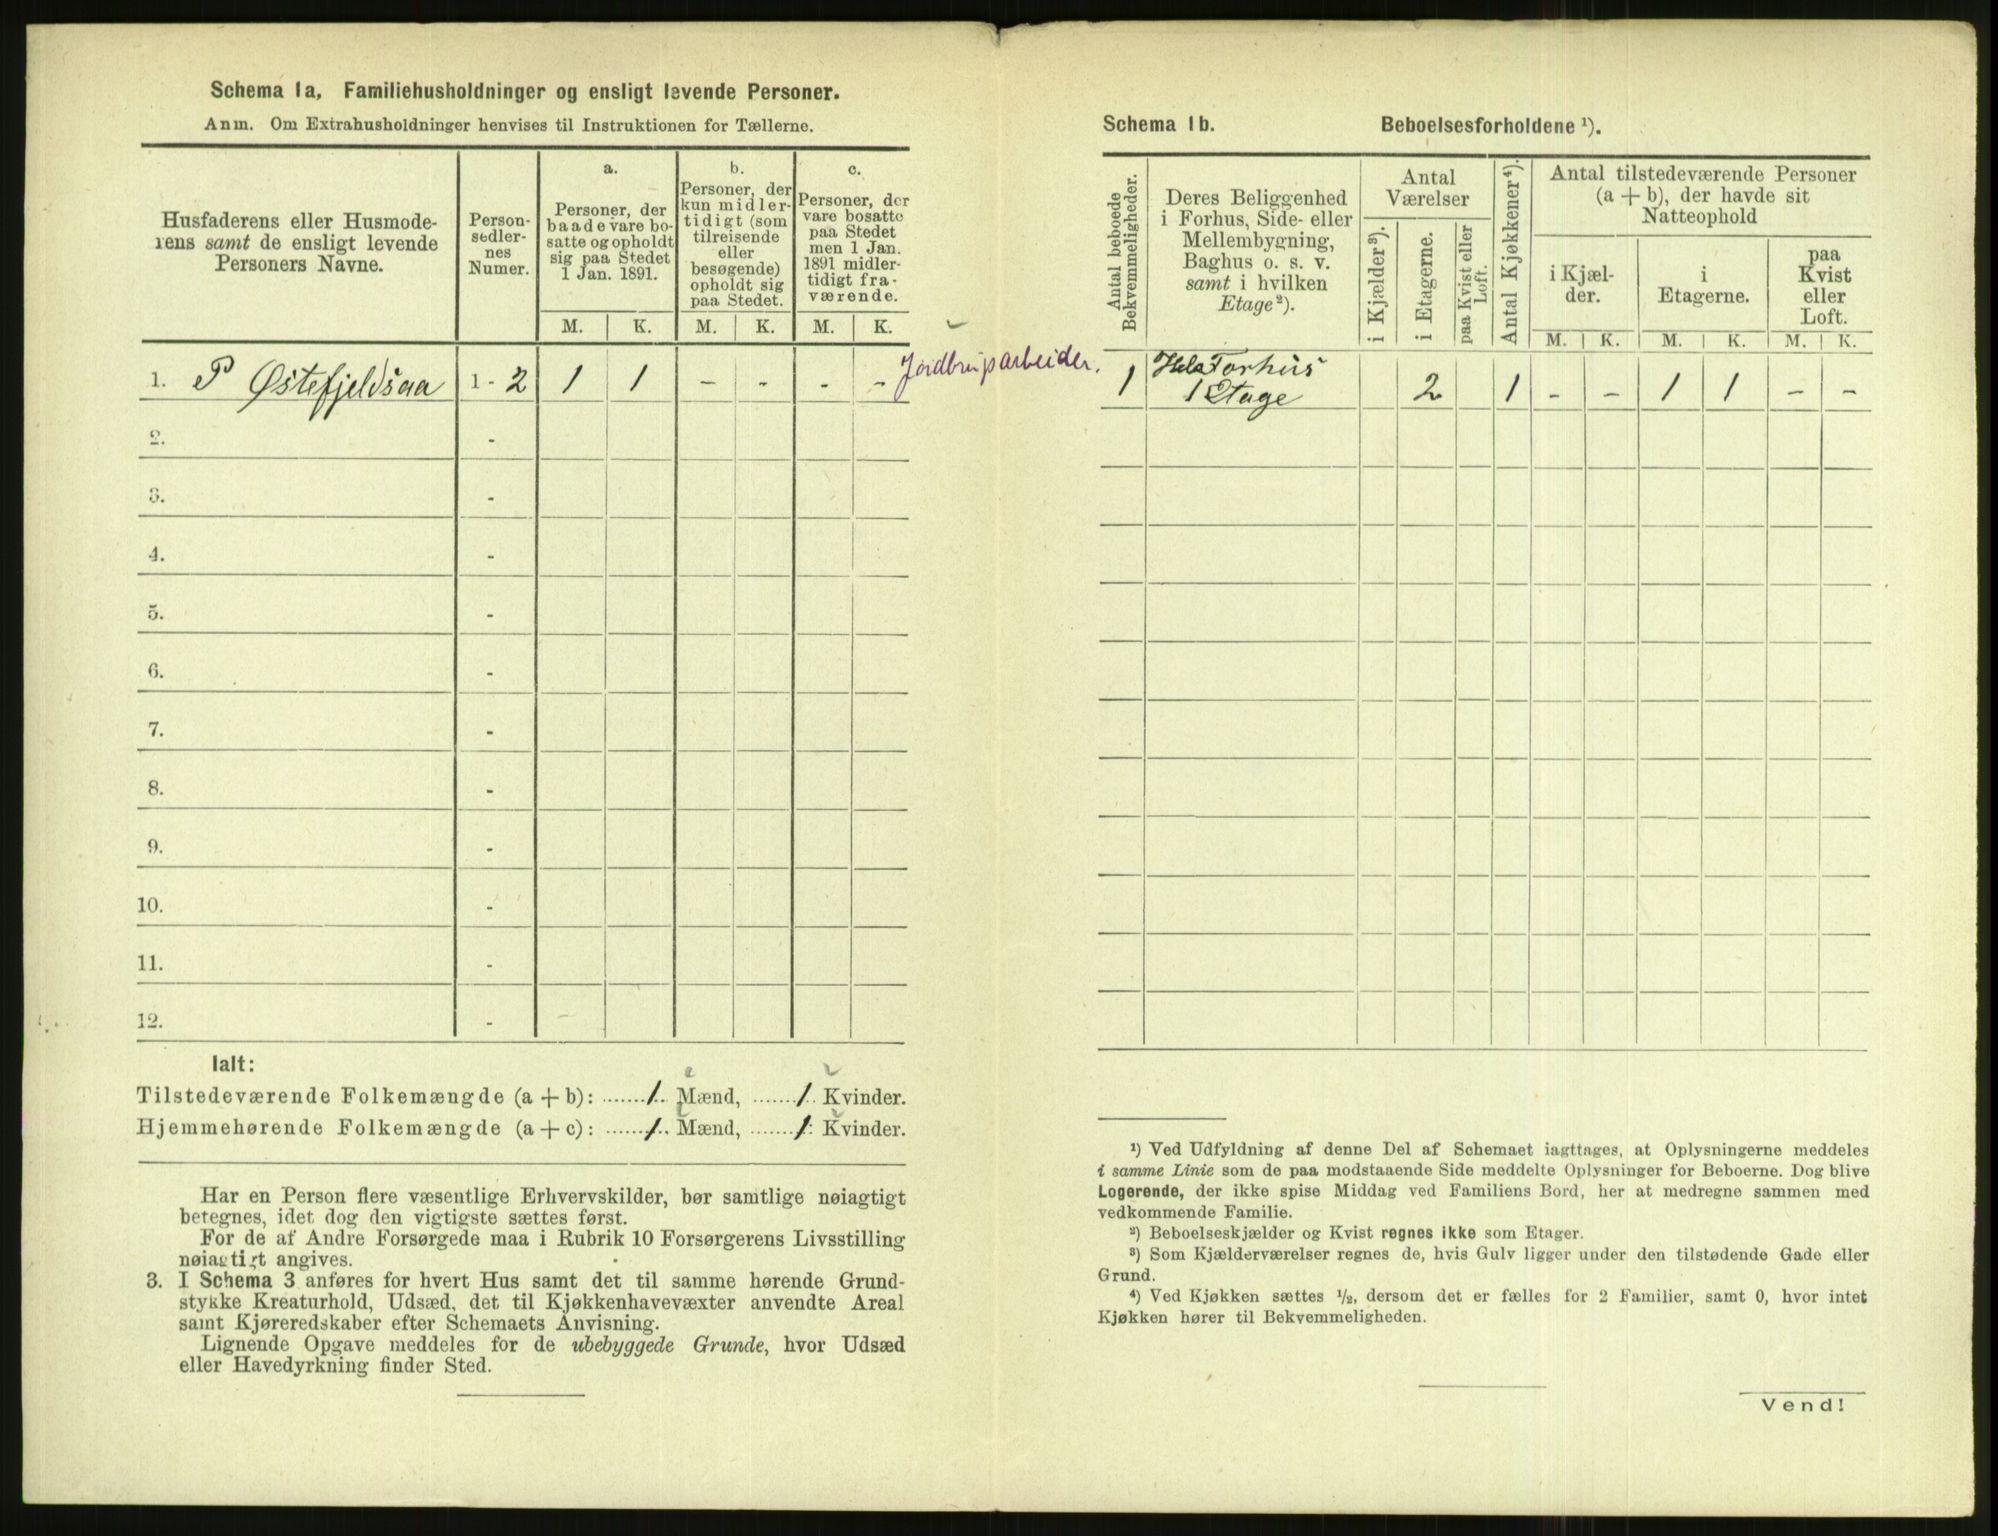 Schema 1a, Familiehusholdninger og ensligt levende Personer.
Anm. Om Extrahusholdninger henvises til Instruktionen for Tællerne.
Husfaderens eller Husmode-
rens samt de ensligt levende
Personers Navne.
Person-
sedler-
nes
Numer.
a.
Personer, der
baade vare bo-
satte og opholdt
sig paa Stedet
1 Jan. 1891.
b.
Personer, der
kun midler-
tidigt (som
tilreisende
eller
besøgende)
opholdt sig
paa Stedet.
c.
Personer, der
vare bosatte
paa Stedet
men 1 Jan.
1891 midler-
tidigt fra-
værende.
M. K. M. K. M. K.
1. P Østefjeldsaa 1 - 2 1 1 - - - - Jordbrugsarbeider.
2. -
3. -
4. -
5. -
6. -
7. -
8. -
9. -
10. -
11. -
12. -
Ialt:
Tilstedeværende Folkemængde (a + b): ....... 1. Mænd, ....... 1. Kvinder.
Hjemmehørende Folkemængde (a + c): ....... 1. Mænd, ....... 1. Kvinder.
Har en Person flere væsentlige Erhvervskilder, bør samtlige nøiagtigt
betegnes, idet dog den vigtigste sættes først.
For de af Andre Forsørgede maa i Rubrik 10 Forsørgerens Livsstilling
nøiagtigt angives.
3. I Schema 3 anføres for hvert Hus samt det til samme hørende Grund-
stykke Kreaturhold, Udsæd, det til Kjøkkenhavevæxter anvendte Areal
samt Kjøreredskaber efter Schemaets Anvisning.
Lignende Opgave meddeles for de ubebyggede Grunde, hvor Udsæd
eller Havedyrkning finder Sted.
Schema 1b. Beboelsesforholdene ¹).
Antal beboede
Bekvemmeligheder.
Deres Beliggenhed
i Forhus, Side- eller
Mellembygning,
Baghus o. s. v.
samt i hvilken
Etage²).
Antal
Værelser
i Kjælder³).
i Etagerne.
paa Kvist eller
Loft.
Antal Kjøkkener⁴).
Antal tilstedeværende Personer
(a + b), der havde sit
Natteophold
i Kjæl-
der.
i
Etagerne.
paa
Kvist
eller
Loft.
M. K. M. K. M. K.
1 Hele Forhus
1 Etage 2 1 - - 1 1 - -
¹) Ved Udfyldning af denne Del af Schemaet iagttages, at Oplysningerne meddeles
i samme Linie som de paa modstaaende Side meddelte Oplysninger for Beboerne. Dog blive
Logerende, der ikke spise Middag ved Familiens Bord, her at medregne sammen med
vedkommende Familie.
²) Beboelseskjælder og Kvist regnes ikke som Etager.
³) Som Kjælderværelser regnes de, hvis Gulv ligger under den tilstødende Gade eller
Grund.
⁴) Ved Kjøkken sættes ½, dersom det er fælles for 2 Familier, samt 0, hvor intet
Kjøkken hører til Bekvemmeligheden.
Vend!